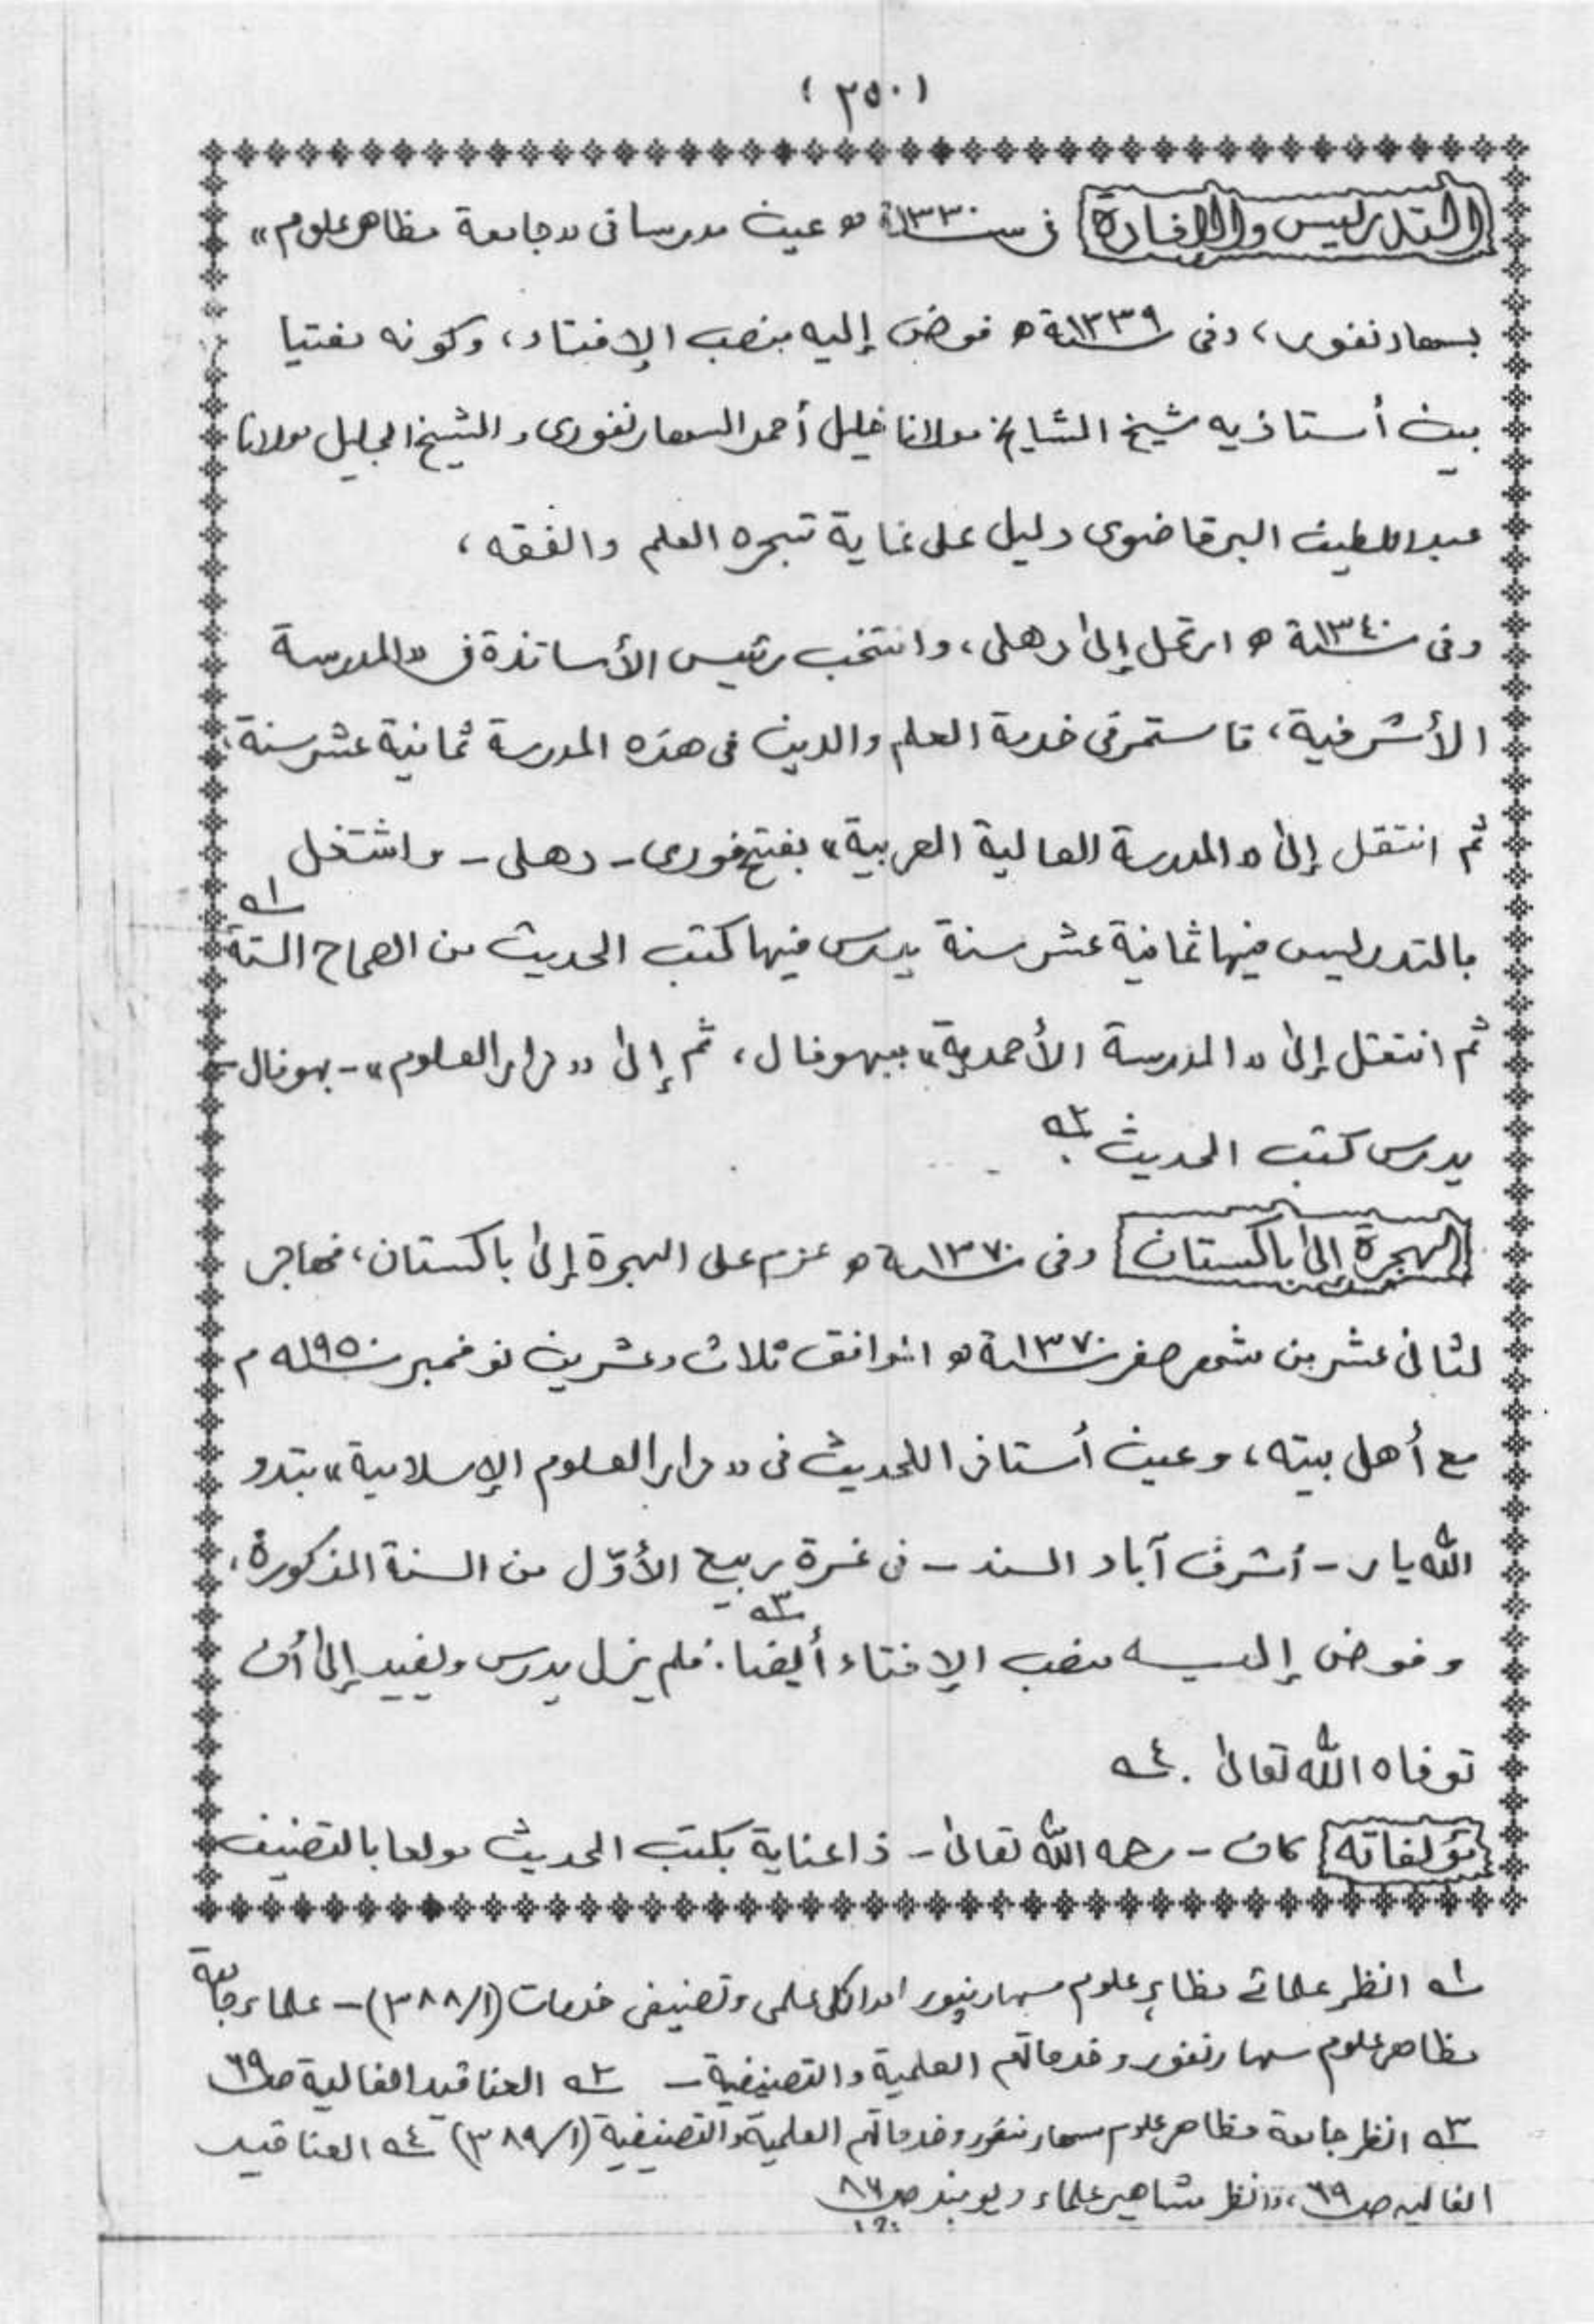 (٢٥٠)
التدريس والإفادة في سنة ١٣٣٠ه عين مدرسا في «جامعة مظاهر علوم»
بسهارنفور، وفي سنة ١٣٣٩ه فوض إليه منصب الإفتاء، وكونه مفتيا
بين أستاذيه شيخ المشايخ مولانا خليل أحمد السهارنفوري والشيخ الجليل مولانا
عبد اللطيف البرقاضوي دليل على غاية تبحره العلم والفقه،
وفي سنة ١٣٤٠ه ارتحل إلى دهلي، وانتخب رئيس الأساتذة في «المدرسة
الأشرفية، فاستمر في خدمة العلم والدين في هذه المدرسة ثمانية عشر سنة،
ثم انتقل إلى «المدرسة العالية العربية» بفتح فوري - دهلي - واشتغل
بالتدريس فيها ثمانية عشر سنة يدرس فيها كتب الحديث من الصحاح الستة ١ه
ثم انتقل إلى «المدرسة الأحمدية» ببهوفال، ثم إلى «دار العلوم» - بهوفال -
يدرس كتب الحديث ٢ه
الهجرة إلى باكستان وفي سنة ١٣٧٠ه عزم على الهجرة إلى باكستان، فهاجر
لثاني عشر من شهر صفر سنة ١٣٧٠ه الموافق ثلاث وعشرين نوفمبر سنة ١٩٥٠م
مع أهل بيته، وعين أستاذا للحديث في «دار العلوم الإسلامية» بتدو
الله يار - أشرف آباد السند - في غرة ربيع الأوّل من السنة المذكورة،
وفوض إليه منصب الإفتاء أيضا. ٣ه فلم يزل يدرس ويفيد إلى أن
توفاه الله تعالى. ٤ه
مؤلفاته كان - رحمه الله تعالى - ذا عناية بكتب الحديث مولعا بالتصنيف
١ه انظر علمائے مظاہر علوم سہارنپور اور انکی علمی وتصنيفى خدمات (٣٨٨/١) - علماء جامعة
مظاهر علوم سهارنفور وخدماتهم العلمية والتصنيفية - ٢ه العناقيد الغالية ص ٦٩
٣ه انظر جامعة مظاهر علوم سهارنفور وخدماتهم العلمية والتصنيفية (٣٨٩/١) ٤ه العناقيد
الغاليه ص ٦٩، وانظر مشاهير علماء ديوبند ص ٨٦